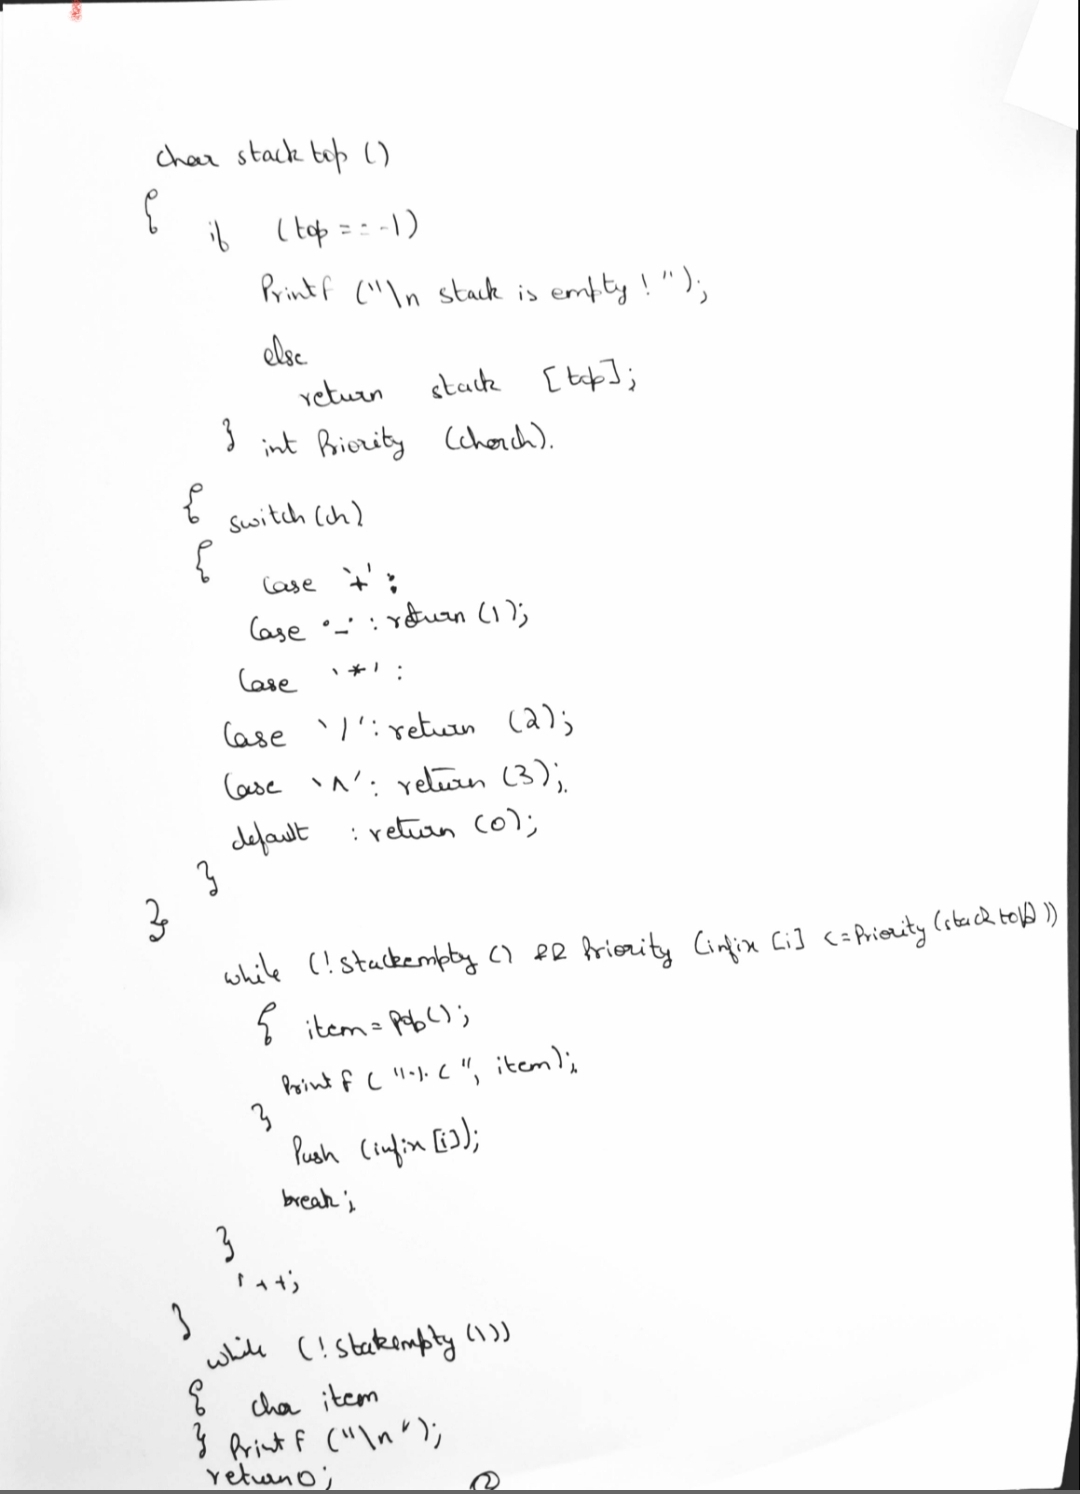 char stack top ()
{
if (top == -1)
Printf ("\n stack is empty ! ");
else
return stack [top];
} int Priority (charch).
{ switch (ch)
{
Case '+' :
Case '-' : return (1);
Case '*' :
Case '/' : return (2);
Case '^' : return (3);
default : return (0);
}
}
while (! stackempty () && Priority (infix [i] <= Priority (stack top))
{ item = Pop();
Printf ( "%c", item);
}
Push (infix [i]);
break;
}
i++;
}
while (! stakempty ()))
{ cha item
} Printf ("\n");
return 0;
2